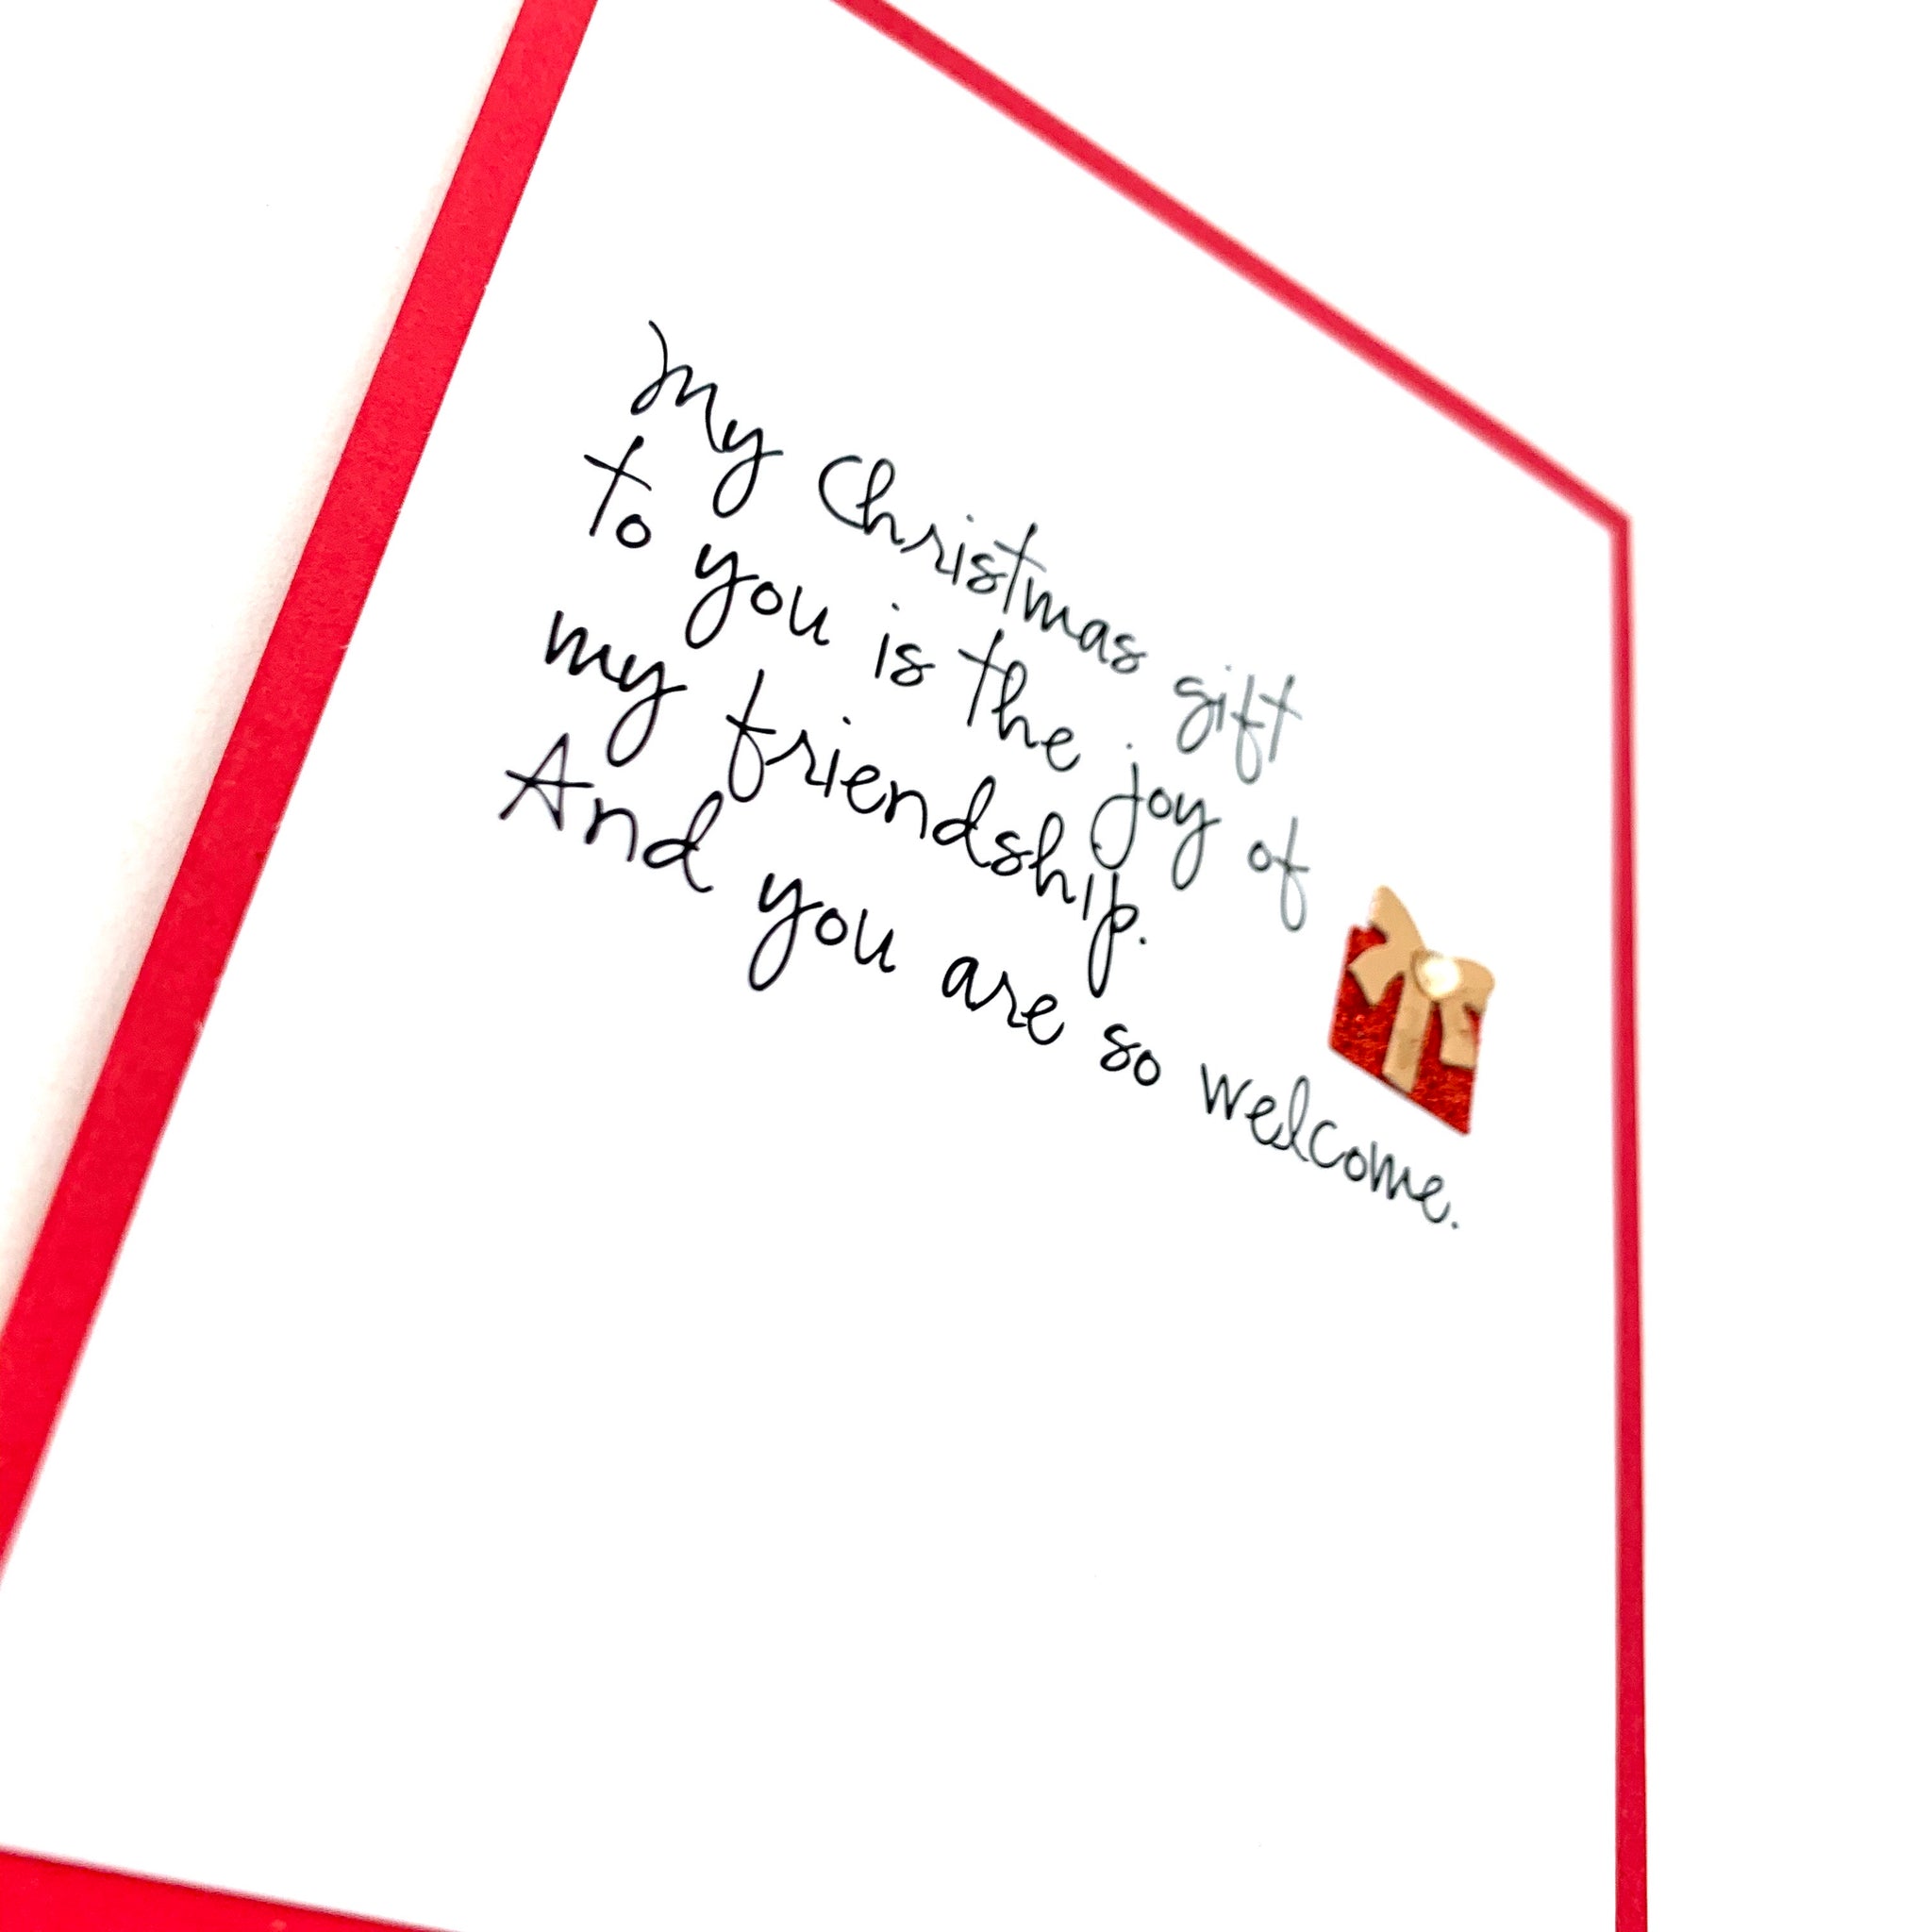 My Christmas gift
to you is the joy of
my friendship.
And you are so welcome.